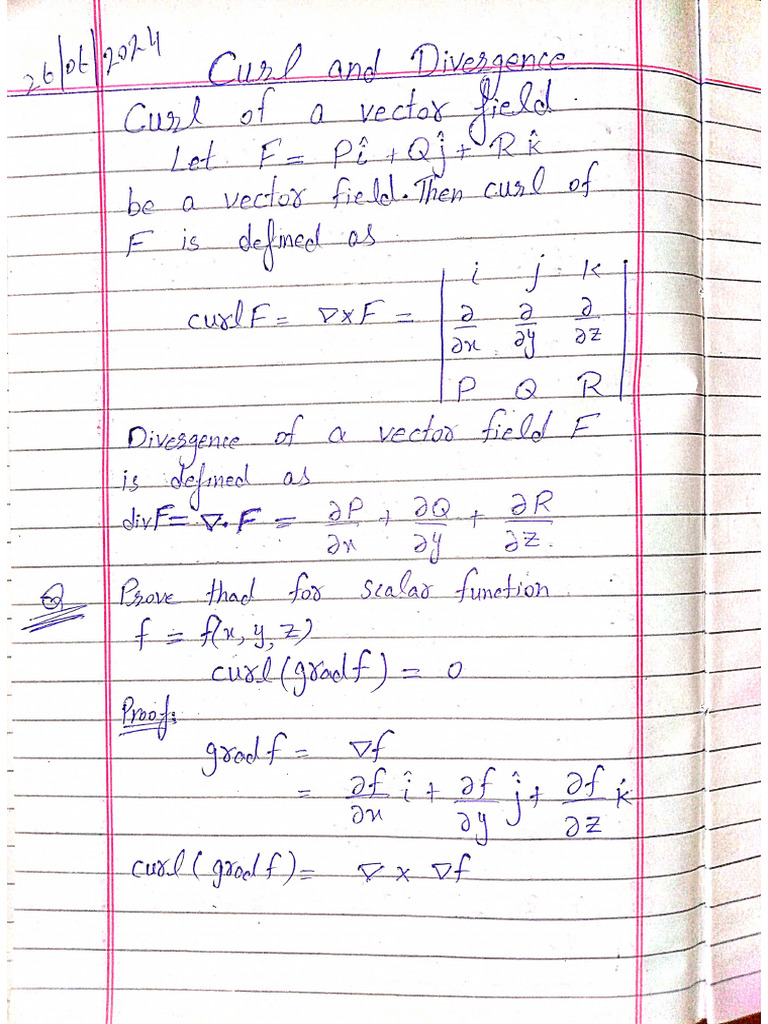 26/06/2024
Curl and Divergence
Curl of a vector field.
Let F = Pî + Qĵ + R k̂
be a vector field. Then curl of
F is defined as
curl F = ∇×F = | i j k |
| ∂/∂x ∂/∂y ∂/∂z |
| P Q R |
Divergence of a vector field F
is defined as
div F = ∇. F = ∂P/∂x + ∂Q/∂y + ∂R/∂z.
Q Prove thad for scalar function
f = f(x, y, z)
curl (grad f) = 0
Proof:
grad f = ∇f
= ∂f/∂x î + ∂f/∂y ĵ + ∂f/∂z k̂
curl (grad f) = ∇ × ∇f